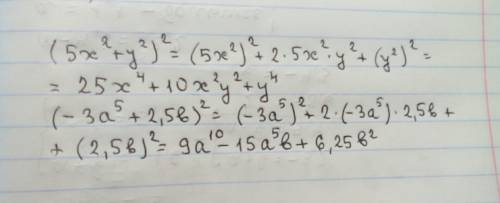 (5x²+y²)² = (5x²)² + 2·5x²·y² + (y²)² =
= 25x⁴ + 10x²y² + y⁴
(-3a⁵ + 2,5в)² = (-3a⁵)² + 2·(-3a⁵)·2,5в +
+ (2,5в)² = 9a¹⁰ - 15a⁵в + 6,25в²